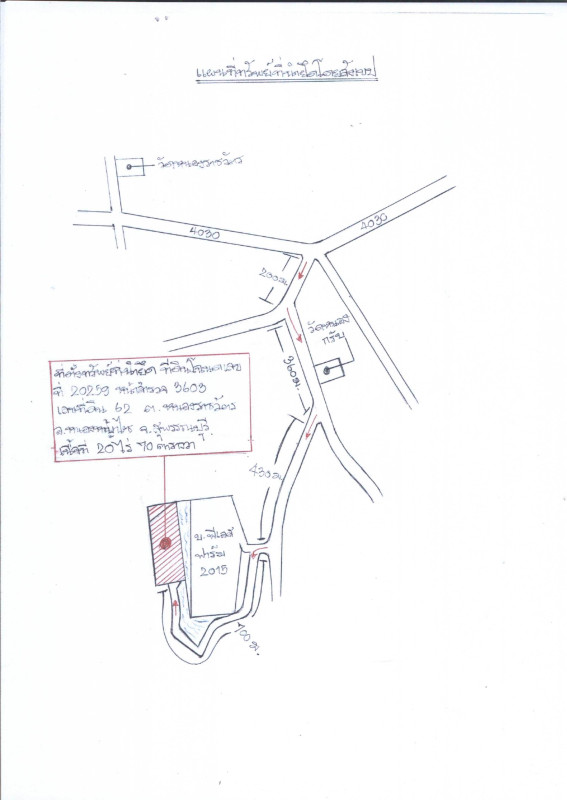 แผนที่ทรัพย์ที่นำยึดโดยสังเขป
วัดหนองราชวัตร
4030
4030
200ม.
วัดหนอง
360ม.
ที่ตั้งทรัพย์ที่นำยึด ที่ดินโฉนดเลขที่
ที่ 20259 หน้าสำรวจ 3603
เลขที่ดิน 62 ต.หนองราชวัตร
อ.หนองหญ้าไซ จ.สุพรรณบุรี
เนื้อที่ 20 ไร่ 70 ตารางวา
430ม.
ฟาร์ม
2015
700 ม.